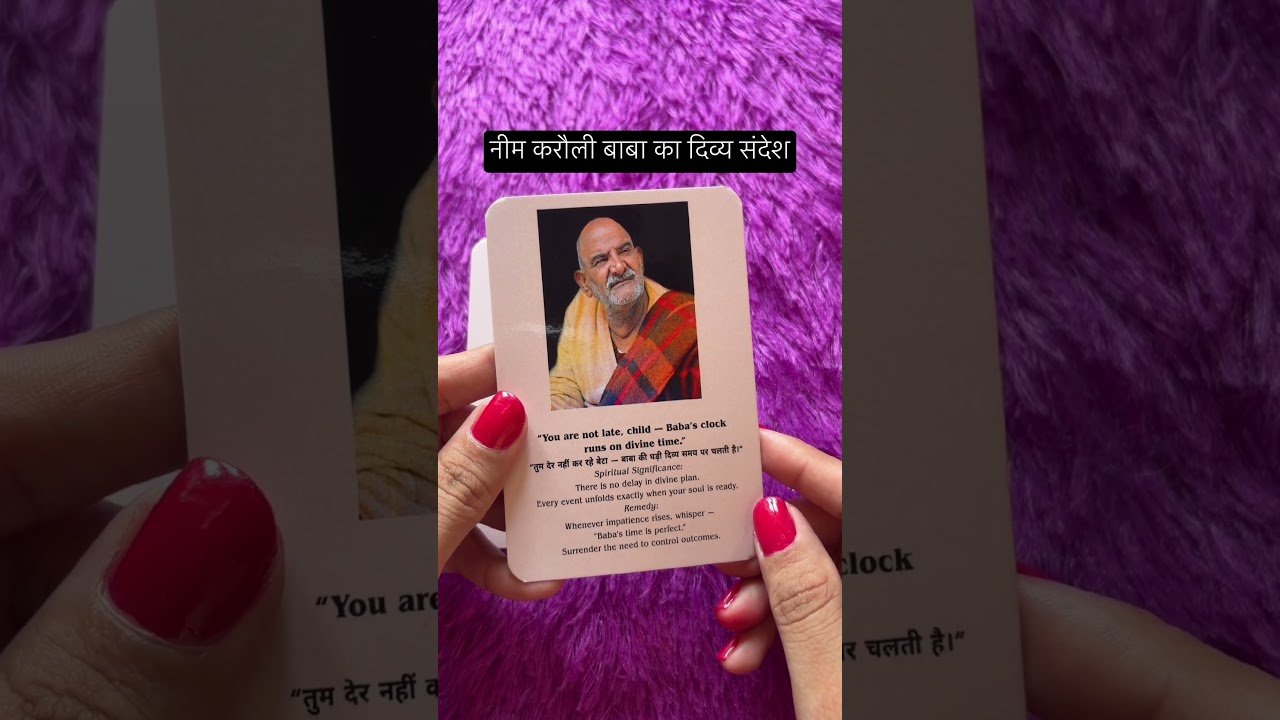 नीम करौली बाबा का दिव्य संदेश
“You are not late, child — Baba’s clock
runs on divine time.”
“तुम देर नहीं कर रहे बेटा — बाबा की घड़ी दिव्य समय पर चलती है।”
Spiritual Significance:
There is no delay in divine plan.
Every event unfolds exactly when your soul is ready.
Remedy:
Whenever impatience rises, whisper —
“Baba’s time is perfect.”
Surrender the need to control outcomes.
“You are
clock
“तुम देर नहीं
पर चलती है।”